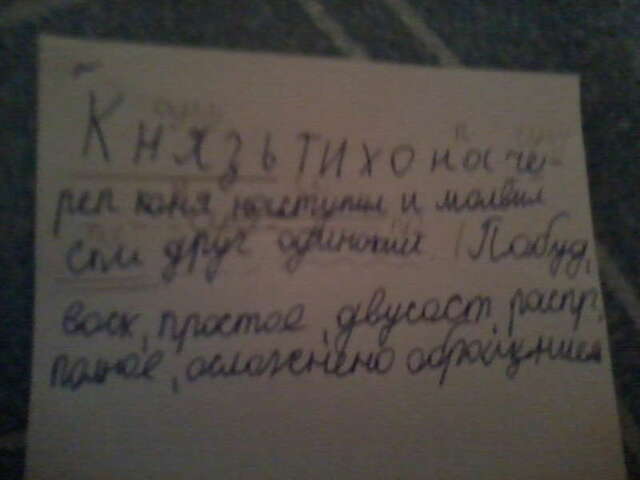 Князь тихо на че-
реп коня наступил и молвил
Спи друг одинокий (Побуд,
воск, простое, двусост, распр,
полное, осложнено обращением